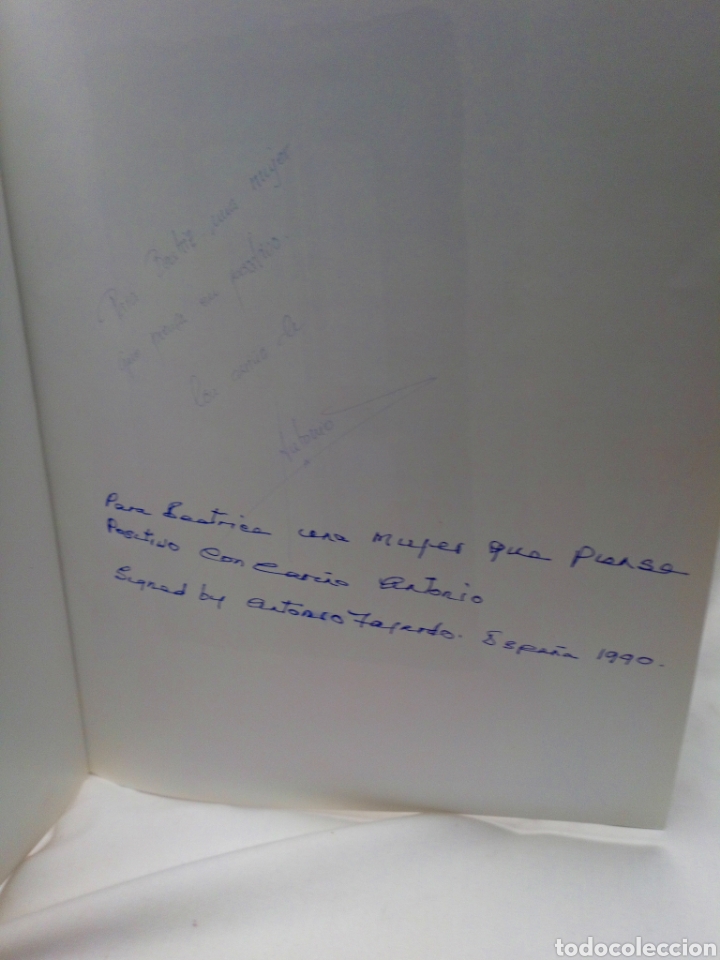 Para Beatriz una mujer
que piensa en positivo.
Con cariño de
Antonio
Para Beatrice una mujer que piensa
Positivo Con Cariño Antonio
Signed by Antonio Fajardo. España 1990.
todocoleccion